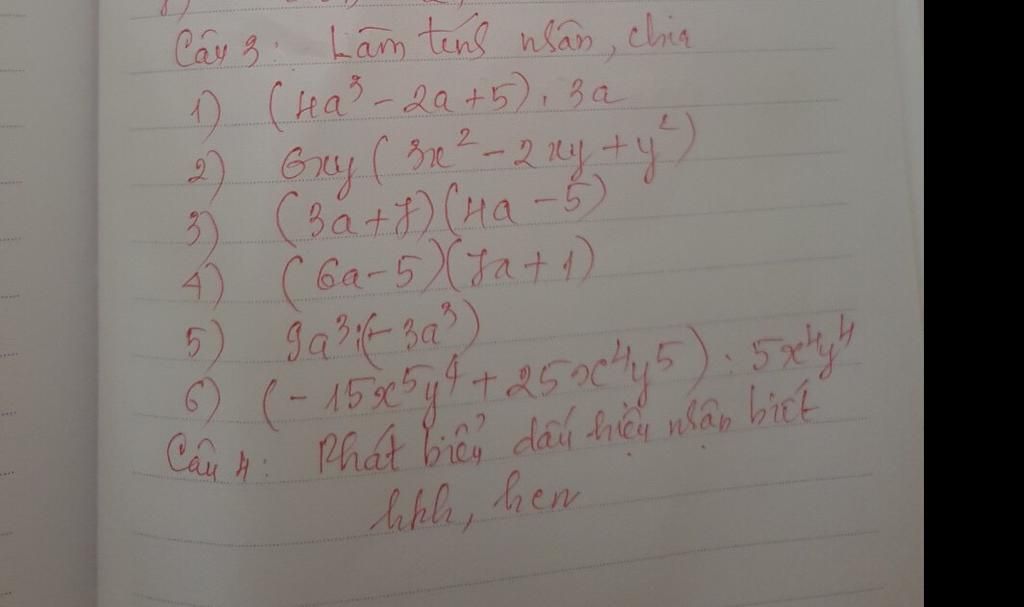 Câu 3: Làm tính nhân, chia
1) (4a³ - 2a + 5) . 3a
2) 6xy ( 3x² - 2xy + y²)
3) (3a + 7)(4a - 5)
4) (6a - 5)(7a + 1)
5) 9a³ : (-3a³)
6) (-15x⁵y⁴ + 25x⁴y⁵) : 5x⁴y⁴
Câu 4: Phát biểu dấu hiệu nhận biết
hbh, hcn